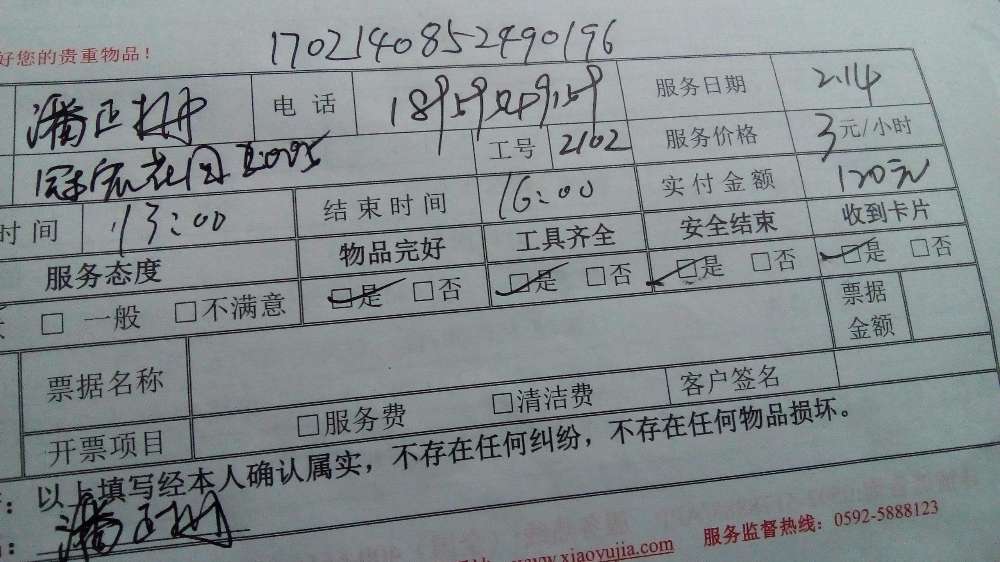 好您的贵重物品！
1702140852490196
潘正树 电话 18959249159 服务日期 2.14
冠宏花园 工号 2102 服务价格 3元/小时
时间 13:00 结束时间 16:00 实付金额 120元
服务态度 物品完好 工具齐全 安全结束 收到卡片
□ 一般 □不满意 □是 □否 □是 □否 □是 □否 □是 □否
票据名称 票据金额
开票项目 □服务费 □清洁费 客户签名
：以上填写经本人确认属实，不存在任何纠纷，不存在任何物品损坏。
：潘正树
www.xiaoyujia.com 服务监督热线：0592-5888123